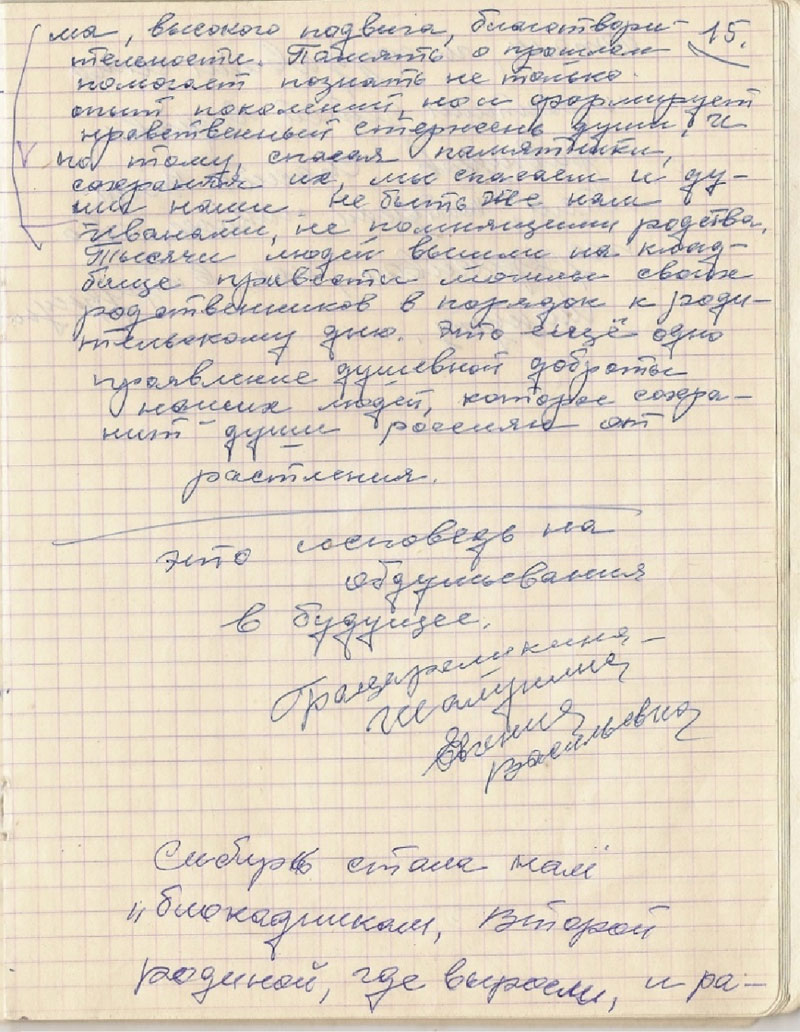 ма, высокого подвига, благотвори- 15.
тельности. Память о прошлом
помогает познать не только
опыт поколений, но и формирует
нравственный стержень души, и
по тому, спасая памятники,
сохраняя их, мы спасаем и ду-
ши наши. Не быть же нам
Иванами, не помнящими родства.
Тысячи людей вышли на клад-
бище привести могилы своих
родственников в порядок к роди-
тельскому дню. Это ещё одно
проявление душевной доброты
наших людей, которое сохра-
нит души россиян от
растления.
Это исповедь на
обдумывания
в будущее.
Евгения
Васильевна
Сибирь стала нам
"блокадникам, второй
родиной, где выросли, и ра-